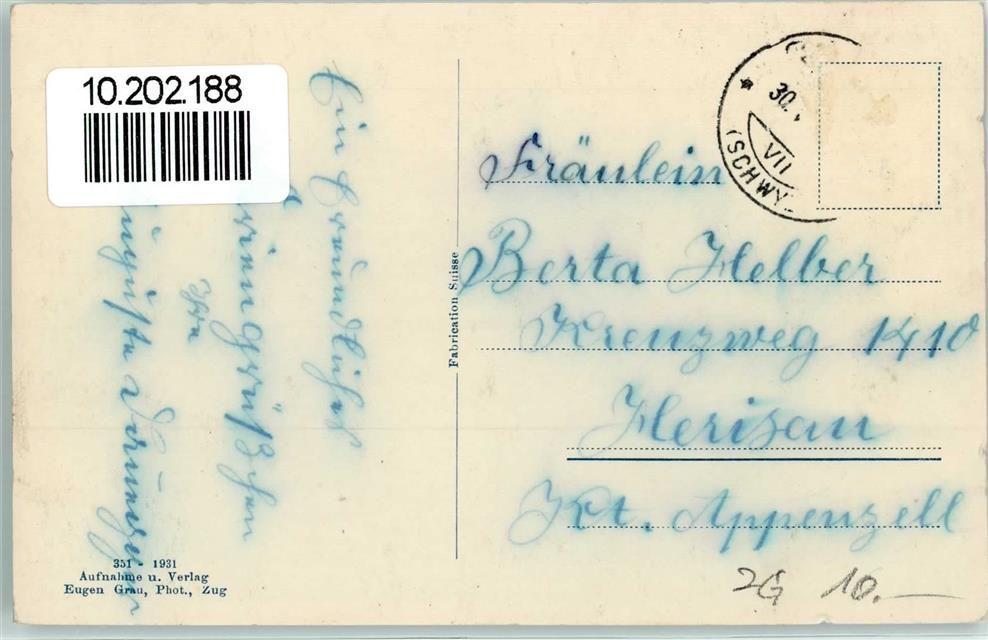 10.202.188
Ein freundliches
Ihre
Fabrication Suisse
30.
VII
(SCHWY
Fräulein
Berta Helber
Kreuzweg 1410
Herisau
Kt. Appenzell
351 - 1931
Aufnahme u. Verlag
Eugen Grau, Phot., Zug
2G 10.-